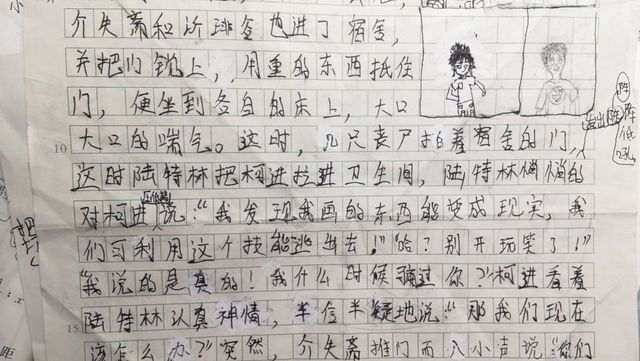 介失斋和沂琲签也进了宿舍，
并把门锁上，用重的东西抵住
门，便坐到各自的床上，大口
大口的喘气。这时，几只丧尸拍着宿舍的门，
发出阵阵低吼
这时陆特林把柯进拉进卫生间，陆特林悄悄的
对柯进说：“我发现我画的东西能变成现实，我
们可利用这个技能逃出去！”“啥？别开玩笑了！”
“我说的是真的！我什么时候骗过你？”柯进看着
陆特林认真神情，半信半疑地说：“那我们现在
该怎么办？”突然，介失斋推门而入小声说：“你们
10
15
距